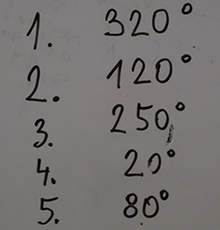 1. 320°
2. 120°
3. 250°
4. 20°
5. 80°